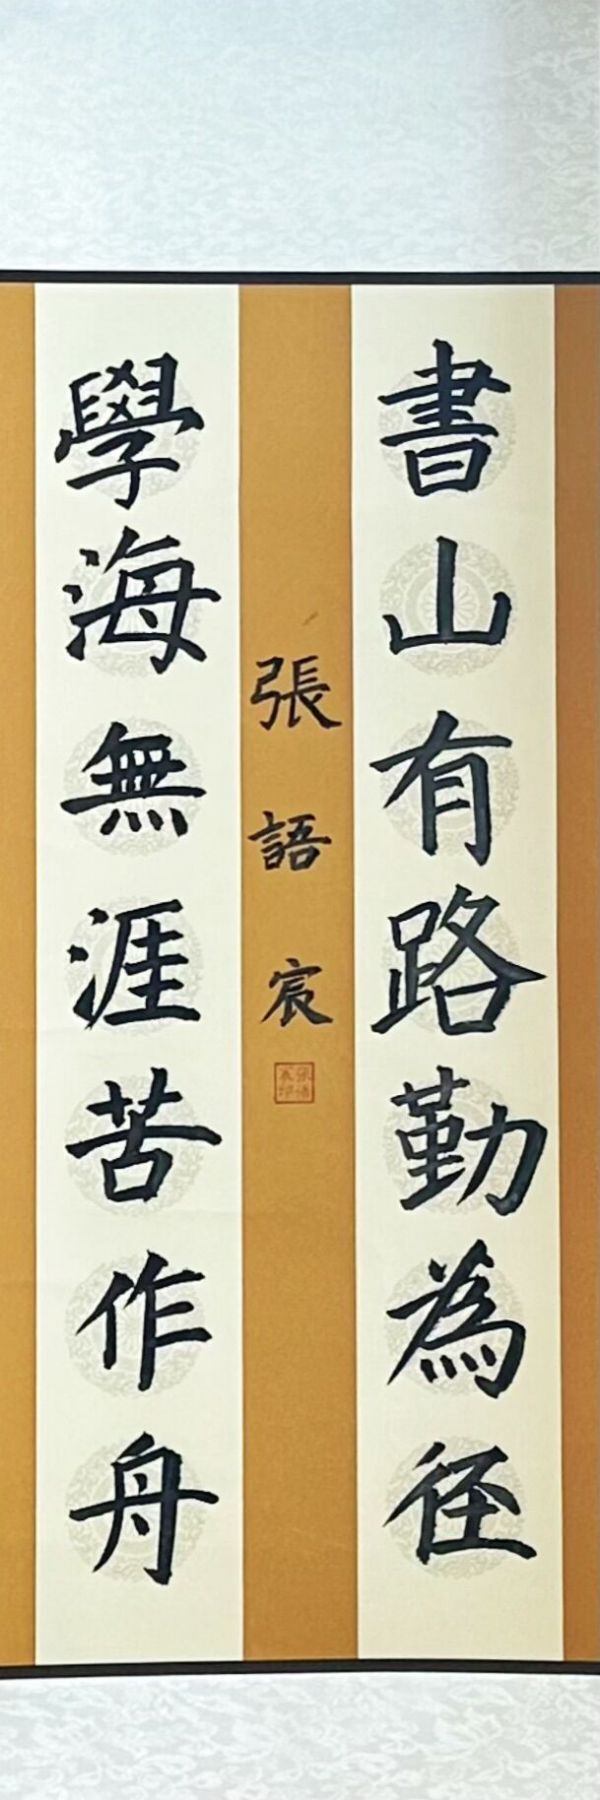 書山有路勤為径
學海無涯苦作舟
張語宸